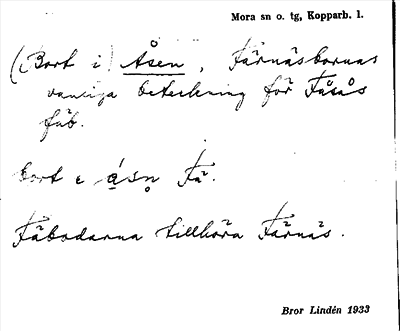 Mora sn o. tg, Kopparb. l.
(Bort i) Åsen, Färnäsbornas
vanliga beteckning för Fåsås
fäb.
bort e åsn Fä.
Fäbodarna tillhöra Färnäs.
Bror Lindén 1933